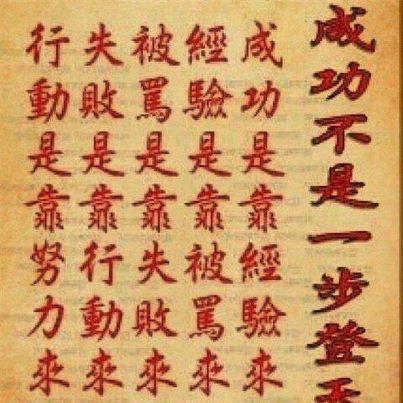 成功不是一步登天
成功是靠經驗來
經驗是靠被罵來
被罵是靠失敗來
失敗是靠行動來
行動是靠努力來